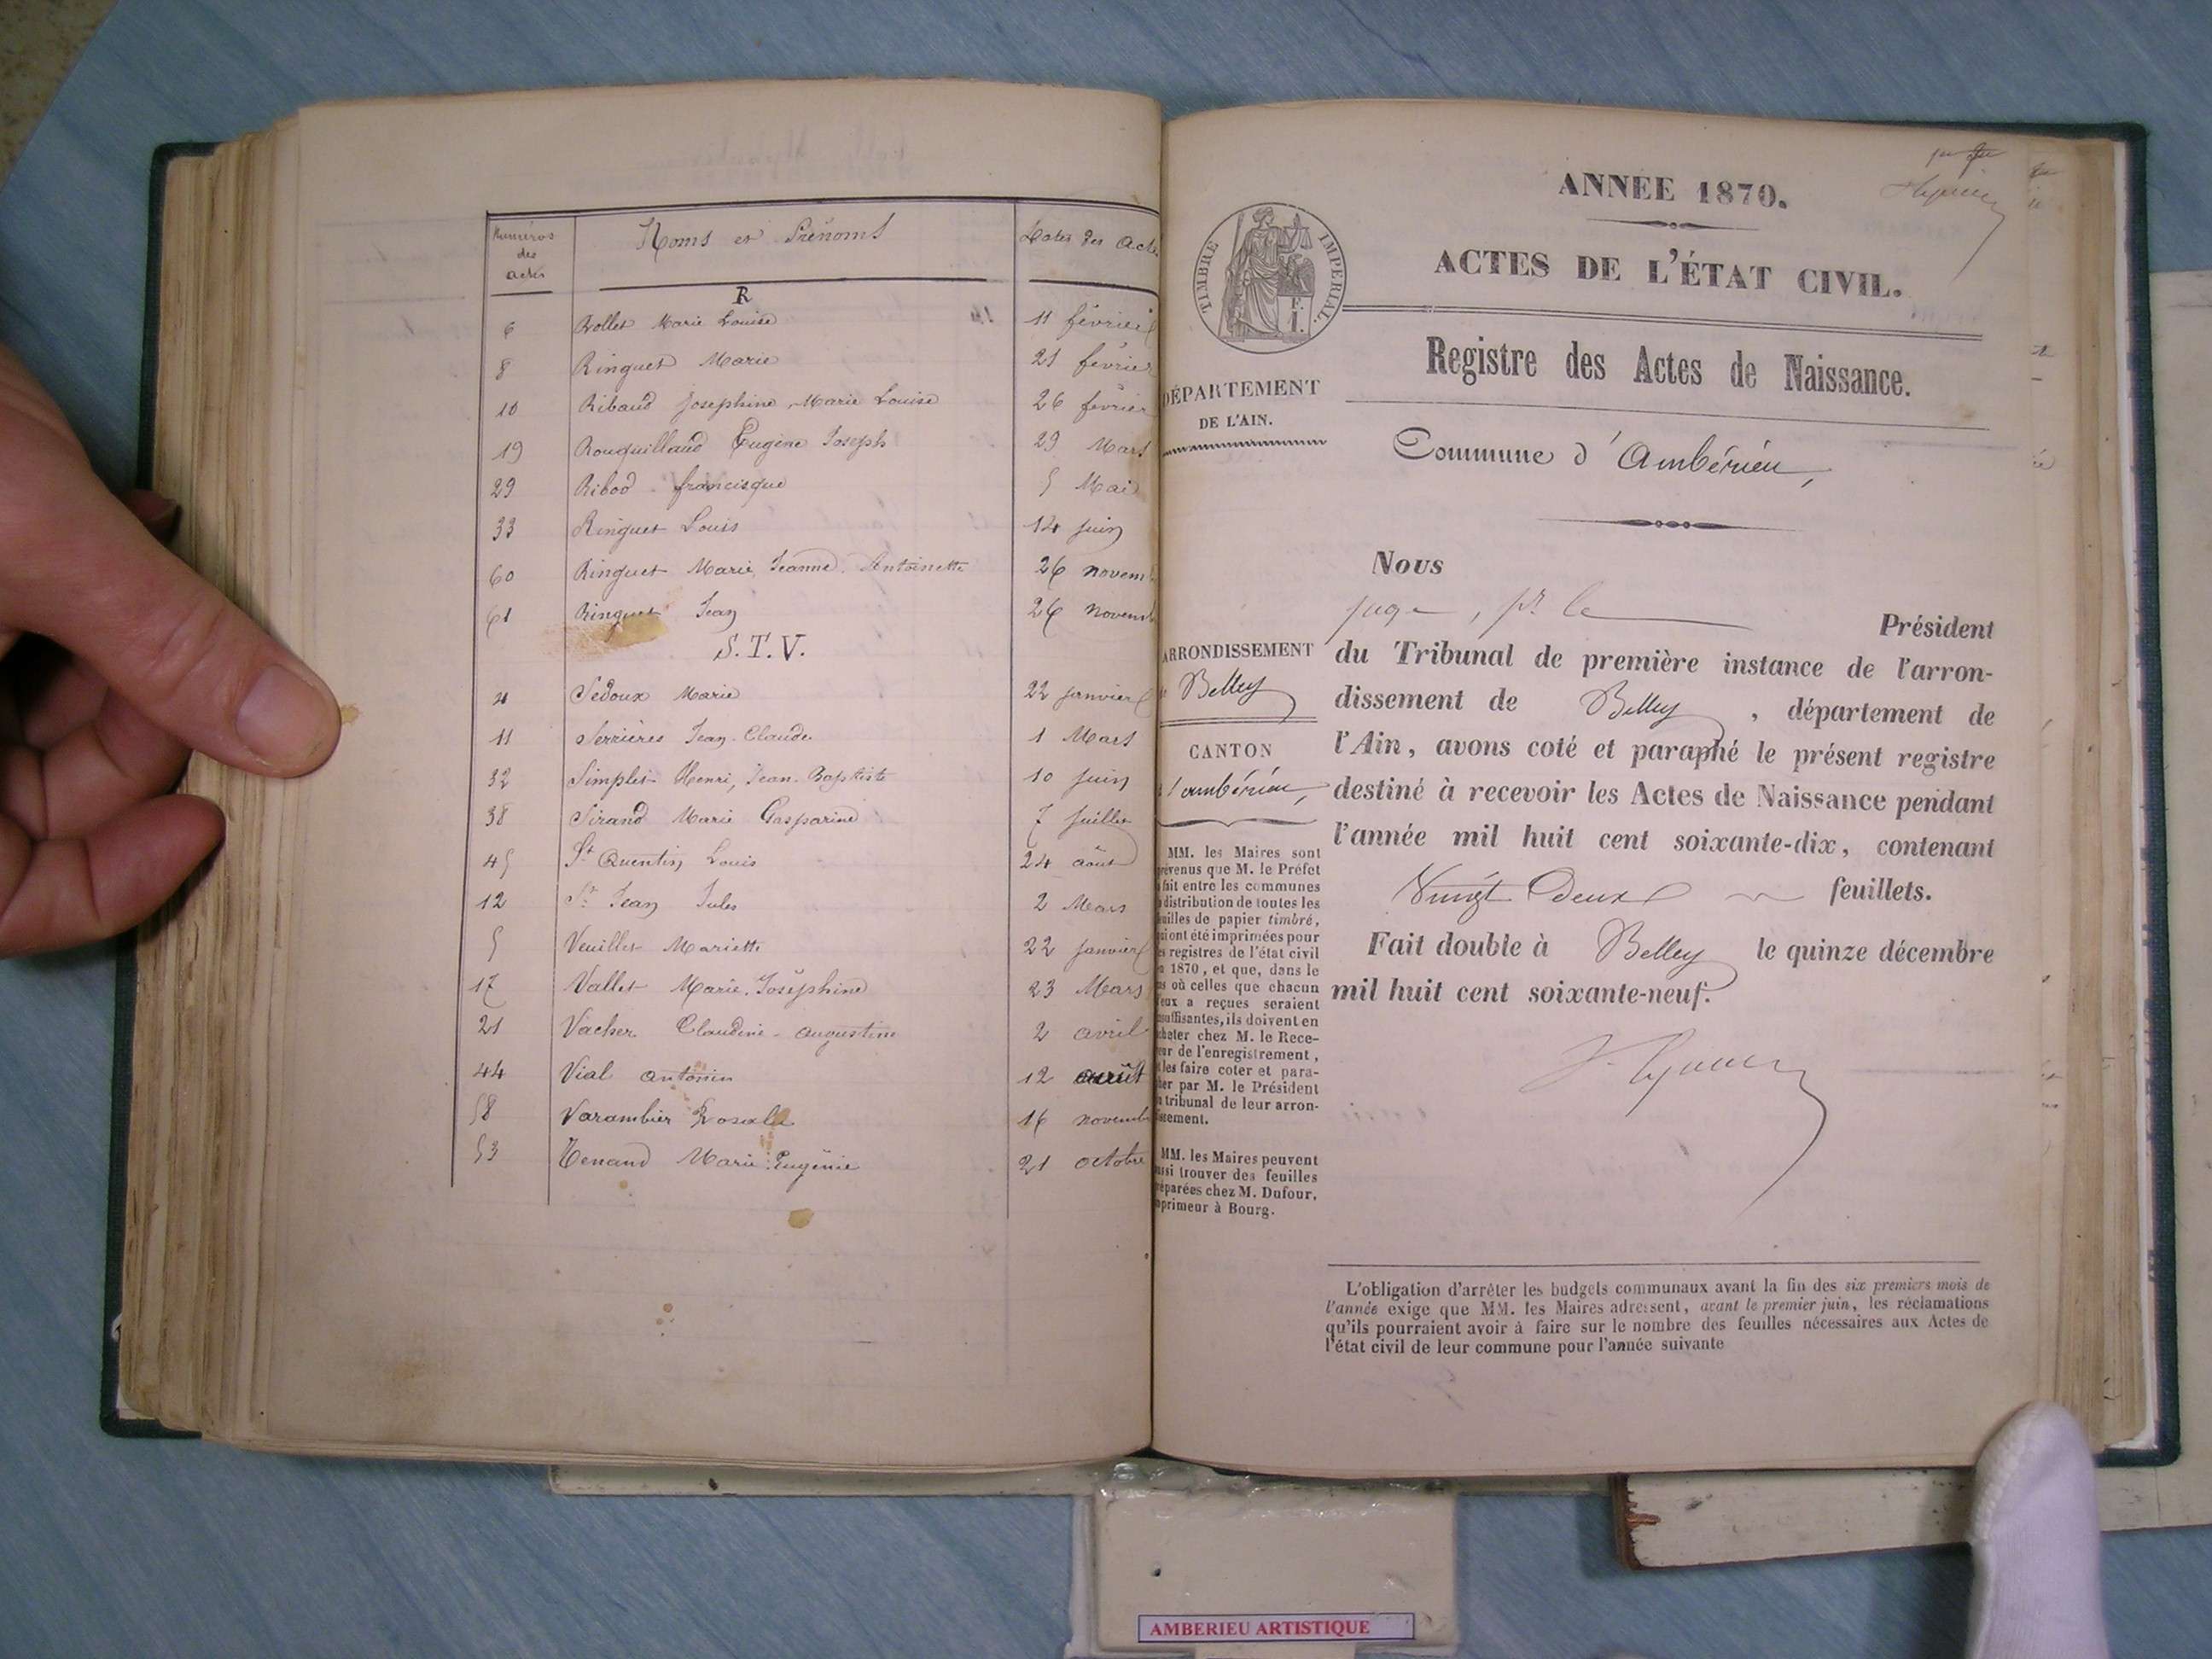 Numéros des actes Noms et Prénoms Dates des Acte
R
6 Rollet Marie Louise 11 février
8 Ringuet Marie 21 février
10 Ribaud Josephine, Marie Louise 26 février
19 Rouquillaud Eugène Joseph 29 Mars
29 Ribod francisque 5 Mai
33 Ringuet Louis 14 juin
60 Ringuet Marie, Jeanne, Antoinette 26 novem
61 Ringuet Jean 26 novemb
S.T.V.
4 Sedoux Marie 22 janvier
11 Serrières Jean-Claude 1 Mars
32 Simplet Henri, Jean-Baptiste 10 juin
38 Sirand Marie Gasparine 7 juillet
45 St Quentin Louis 24 août
12 St Jean Jules 2 Mars
5 Veuillet Mariette 22 janvier
17 Vallet Marie-Joséphine 23 Mars
21 Vacher Claudine-augustine 2 avril
44 Vial antonin 12 août
58 Varambier Rosalie 16 novemb
53 Tenand Marie-Eugénie 21 octobre
ANNÉE 1870.
ACTES DE L'ÉTAT CIVIL.
TIMBRE IMPÉRIAL.
F.
1.
Registre des Actes de Naissance.
DÉPARTEMENT
DE L'AIN.
Commune d'Ambérieu,
Nous
juge, pr le Président
du Tribunal de première instance de l'arron-
dissement de Belley, département de
l'Ain, avons coté et paraphé le présent registre
destiné à recevoir les Actes de Naissance pendant
l'année mil huit cent soixante-dix, contenant
Vingt Deux feuillets.
Fait double à Belley le quinze décembre
mil huit cent soixante-neuf.
ARRONDISSEMENT
Belley
CANTON
d'ambérieu,
MM. les Maires sont
révenus que M. le Préfet
fait entre les communes
distribution de toutes les
uilles de papier timbré,
ui ont été imprimées pour
es registres de l'état civil
1870, et que, dans le
as où celles que chacun
'eux a reçues seraient
suffisantes, ils doivent en
cheter chez M. le Rece-
eur de l'enregistrement,
les faire coter et para-
her par M. le Président
tribunal de leur arron-
issement.
MM. les Maires peuvent
ussi trouver des feuilles
réparées chez M. Dufour,
mprimeur à Bourg.
L'obligation d'arrêter les budgets communaux avant la fin des six premiers mois de
l'année exige que MM. les Maires adressent, avant le premier juin, les réclamations
qu'ils pourraient avoir à faire sur le nombre des feuilles nécessaires aux Actes de
l'état civil de leur commune pour l'année suivante
AMBERIEU ARTISTIQUE